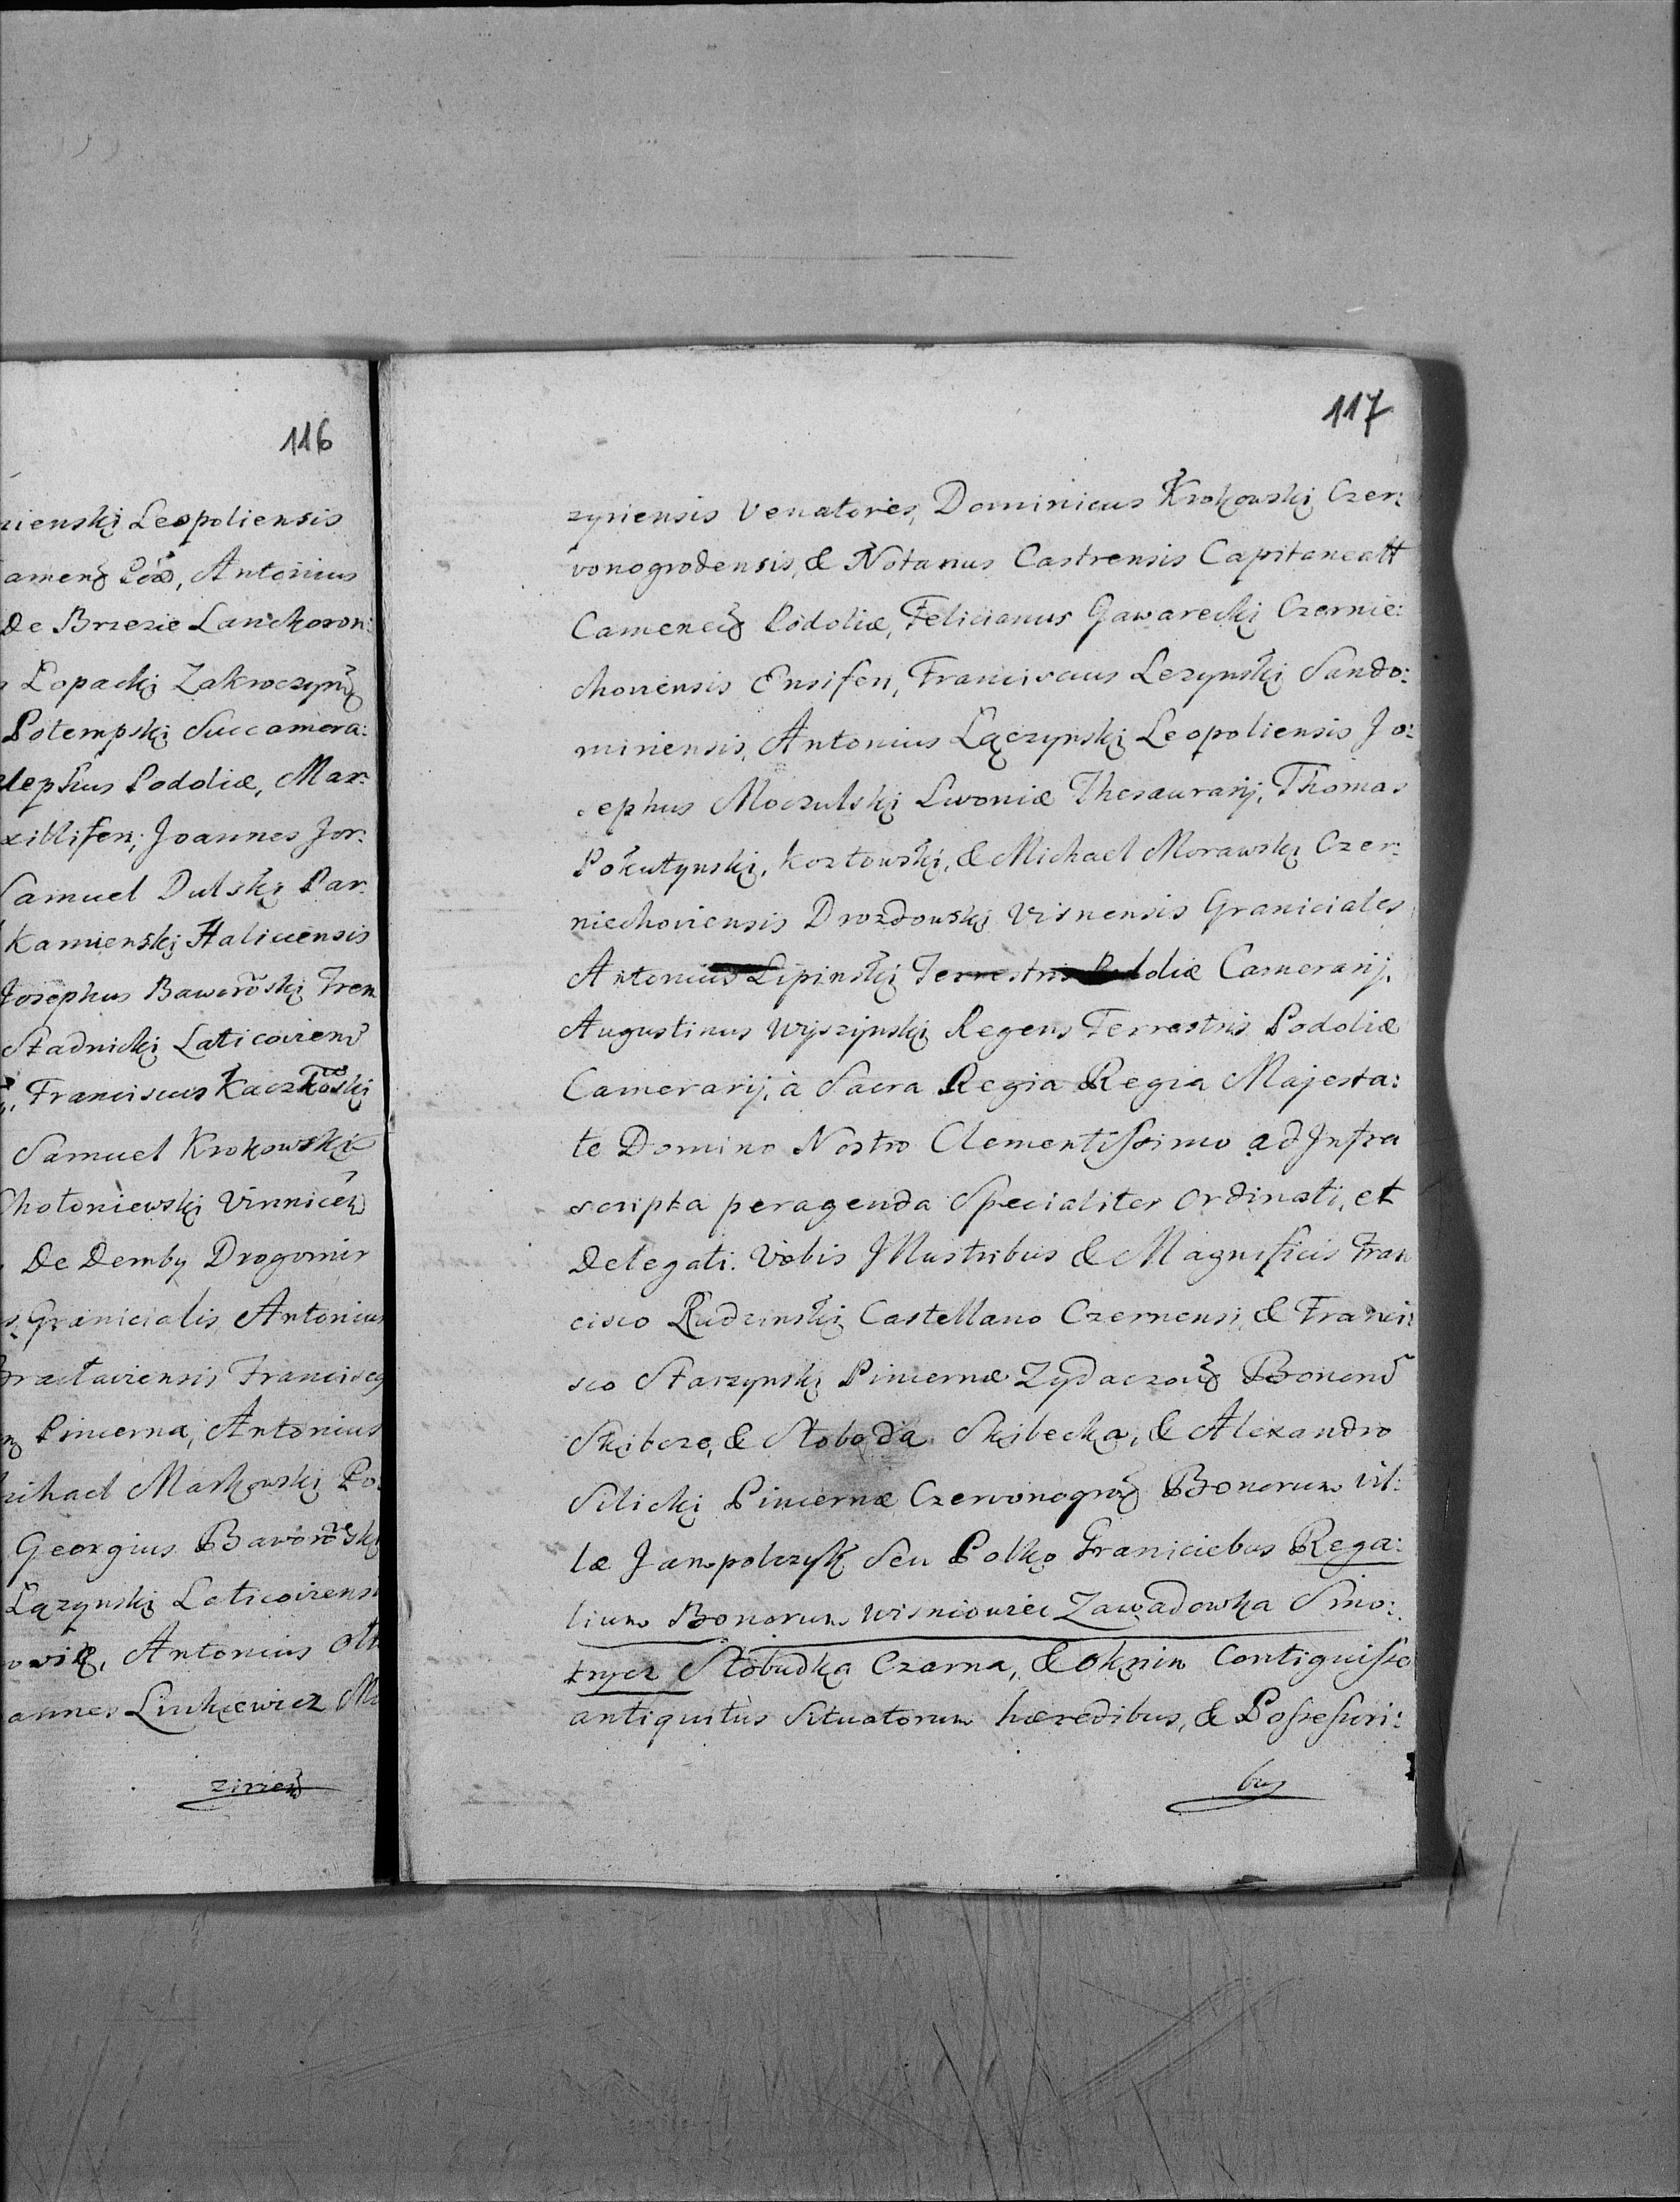 116
nienski Leopoliensis
Antonius
de Brzezie Lanckoron:
Lopacki Zakroczyn
Potempski Succamera:
lephus Podoliæ, Mar:
xillifen; Joannes Jor:
Samuel Dulski Par:
Kamienski Haliciensis
Josephus Baworoski Trem
Stadnicki Laticoviens
Franciscus Kaczkoski
Samuel Krokowski
Chołoniewski Vinnicen
De Demby Drogomir
Granicialis Antonius
Braclaviensis Franciscus
Pincerna, Antonius
Michael Markowski Po:
Georgius Baworoski
Lązynski Laticoviens
Antonius
annes Linkiewicz
zirien
117
zyriensis Venatores, Dominicus Krokowski Czer:
vonogrodensis, & Notarius Castrensis Capitaneatt
Camenec Podoliæ, Felicianus Gawarecki Czernie:
choviensis Ensiferi, Franciscus Lezynski Sando:
miriensis, Antonius Łączynski Leopoliensis Jo:
sephus Moczulski Livoniæ Thesaurarij, Thomas
Pokutynski, Kozłowski, & Michael Morawski Czer:
niechoviensis Drozdowski Visnensis Graniciales
Antonius Lipinski Terrestris Podoliæ Camerarij,
Augustinus Wyszynski Regens Terrestris Podoliæ
Camerarij, à Sacra Regia Regia Majesta:
te Domino Nostro Clementissimo ad Infra
scripta peragenda Specialiter Ordinati, et
Delegati. Vobis Illustribus & Magnificis Fran
cisco Rudzinski Castellano Czernensi, & Francis
sco Starzynski Pincernæ Zydaczow Bonorum
Skibcze, & Słoboda Skibecka, & Alexandro
Silicki Pincernæ Czervonogrod Bonorum Vil:
læ Janpolczyk Seu Polko Graniciebus Rega:
lium Bonorum Wisniowiec Zawadowka Smo:
trycz Słobudka Czarna, & Oknin Contiguisse
antiquitùs Situatorum hæredibus, & Possessori:
bus